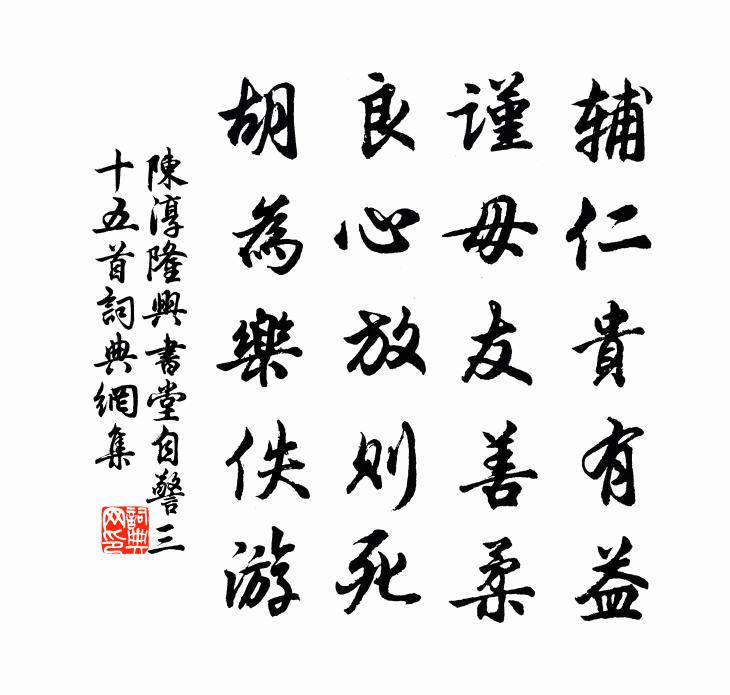 輔仁貴有益
謹毋友善柔
良心放則死
胡為樂佚游
陳淳隆興書堂自警三
十五首詞典網集
詞典
网印